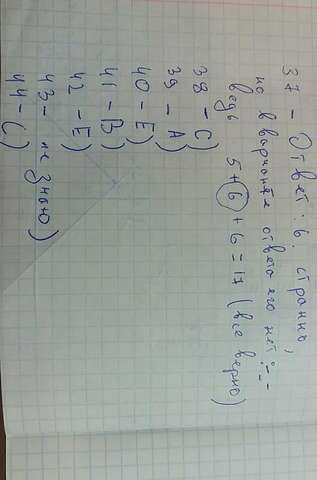 37 - Ответ: 6. странно,
но в вариантах ответа его нет :--
ведь 5+6+6=17 (все верно)
38 - C)
39 - A)
40 - E)
41 - B)
42 - E)
43 - не знаю)
44 - C)